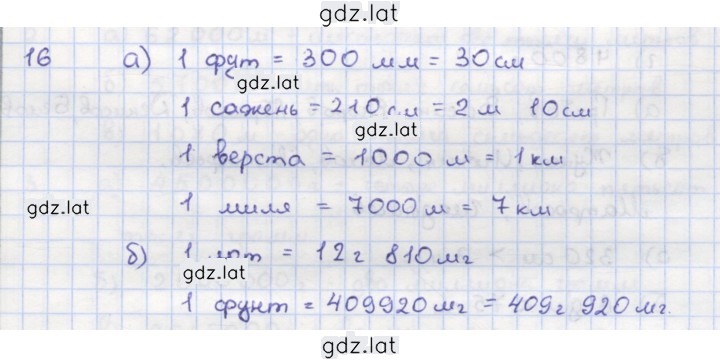 gdz.lat
16 а) 1 фут = 300 мм = 30 см
gdz.lat
1 сажень = 210 см = 2 м 10 см
gdz.lat
1 верста = 1000 м = 1 км
gdz.lat 1 миля = 7000 м = 7 км
б) 1 лот = 12 г 810 мг
gdz.lat
1 фунт = 409920 мг = 409 г 920 мг.
gdz.lat